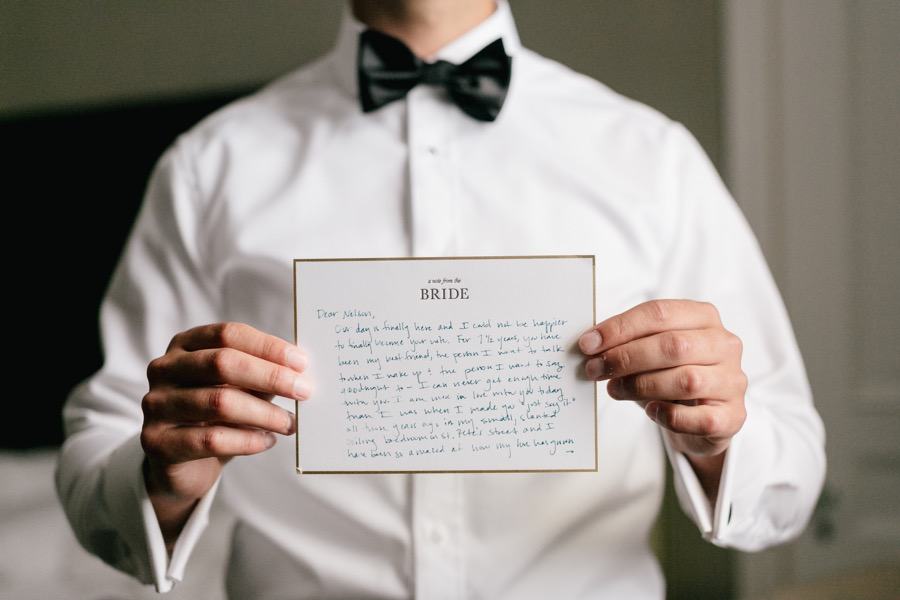 a note from the
BRIDE
Dear Nelson,
Our day is finally here and I could not be happier
to finally become your wife. For 7 1/2 years, you have
been my best friend, the person I want to talk
to when I wake up + the person I want to say
goodnight to - I can never get enough time
with you. I am more in love with you today
than I was when I made you "just say it"
all those years ago in my small, slanted
ceiling bedroom on St. Pete's street and I
have been so amazed at how my love has grown
→